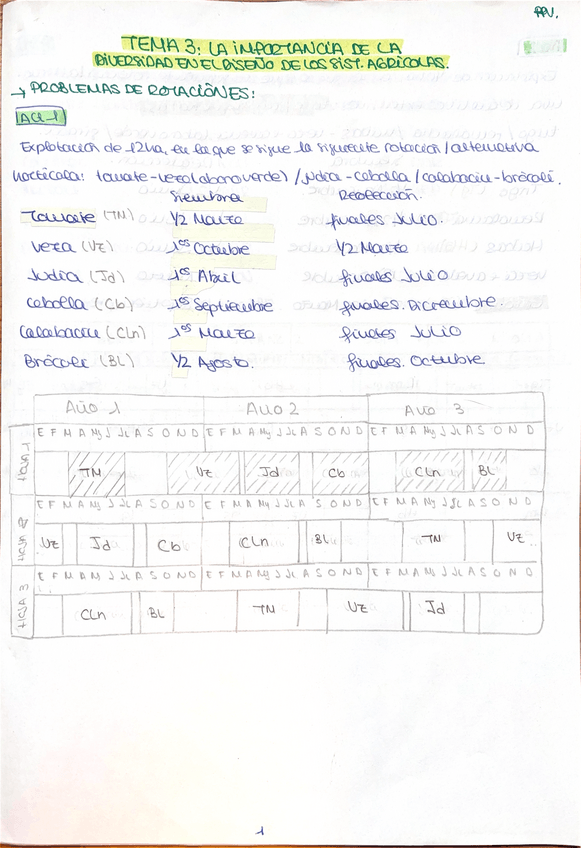 PPV.
TEMA 3: LA IMPORTANCIA DE LA
DIVERSIDAD EN EL DISEÑO DE LOS SIST. AGRÍCOLAS.
→ PROBLEMAS DE ROTACIONES:
Act. 1
Explotación de 12ha, en la que se sigue la siguiente rotación/alternativa
hortícola: tomate-veza(abono verde)/judía-cebolla/calabacín-brócoli.
Siembra Recolección.
Tomate (TM) 1/2 Marzo finales Julio.
Veza (Vz) 1os Octubre 1/2 Marzo
Judía (Jd) 1os Abril finales Julio
Cebolla (Cb) 1os Septiembre finales. Diciembre.
Calabacín (CLn) 1os Marzo finales Julio
Brócoli (BL) 1/2 Agosto. finales. Octubre
Año 1 Año 2 Año 3
HOJA 1
E F M A My J JL A S O N D E F M A My J JL A S O N D E F M A My J JL A S O N D
TM Vz Jd Cb CLn BL
HOJA 2
E F M A My J JL A S O N D E F M A My J JL A S O N D E F M A My J JL A S O N D
Vz Jd Cb CLn BL TM Vz
HOJA 3
E F M A My J JL A S O N D E F M A My J JL A S O N D E F M A My J JL A S O N D
CLn BL TM Vz Jd
1